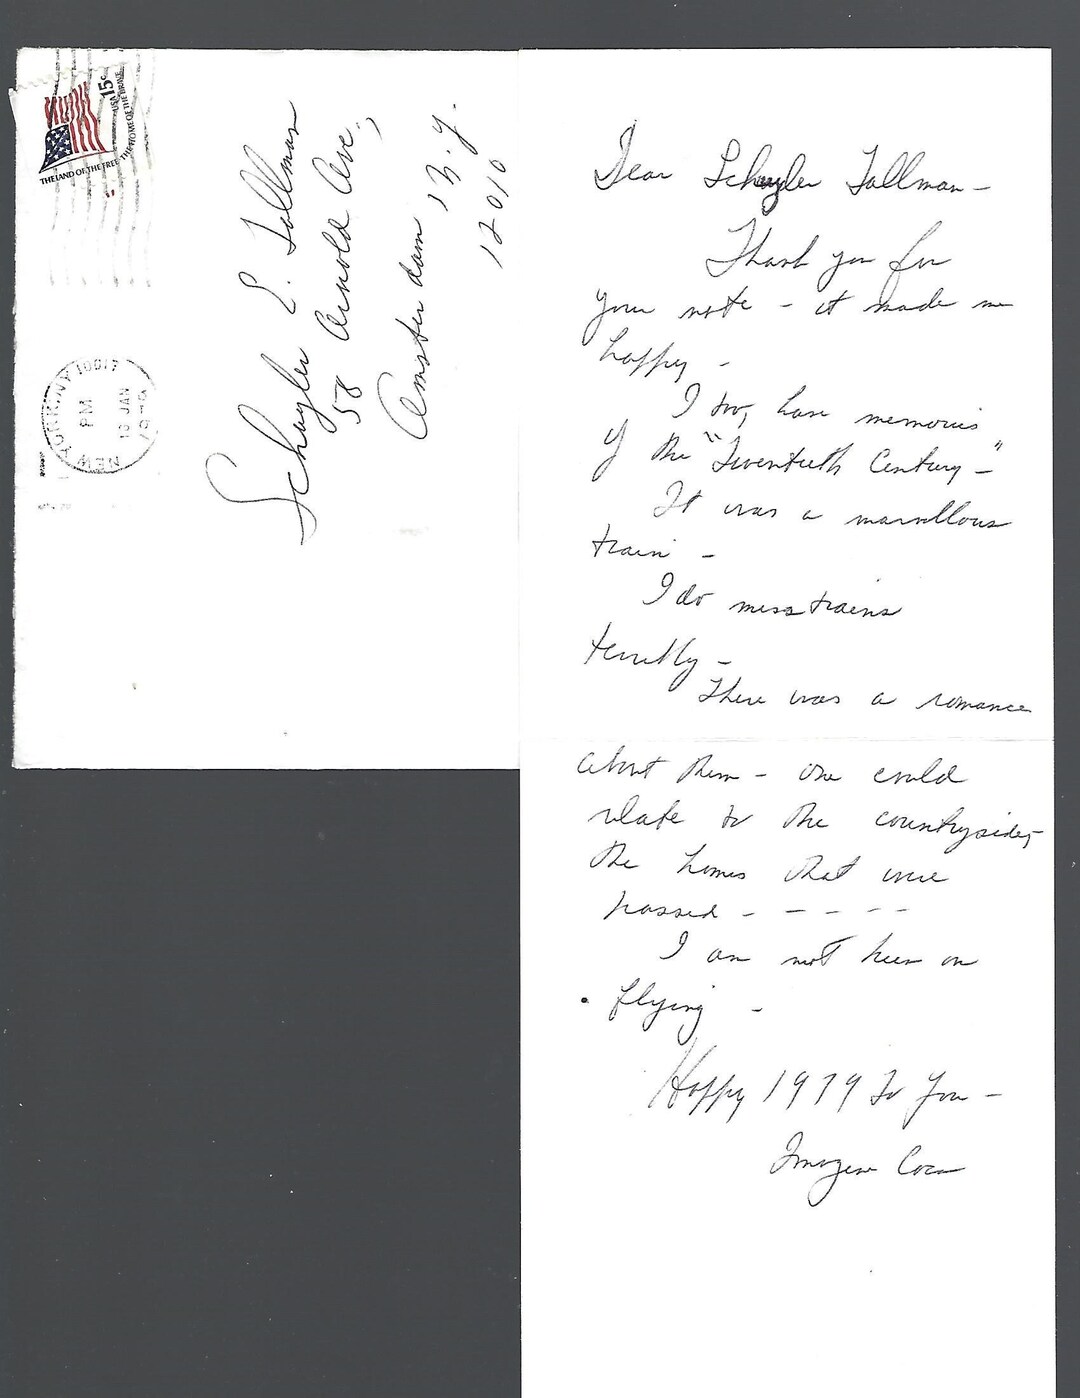 15c
USA
THE LAND OF THE FREE THE HOME OF THE BRAVE
NEW YORK, NY 10017
PM
JAN
Schuyler E. Tallman
58 Arnold Ave.,
Amsterdam, N.Y.
12010
Dear Schuyler Tallman -
Thank you for
your note - it made me
happy -
I too, have memories
of the "Twentieth Century -"
It was a marvellous
train -
I do miss trains
terribly -
There was a romance
about them - one could
relate to the countryside,
the homes that were
passed - - - - -
I am not keen on
flying -
Happy 1979 to you -
Imogene Coca